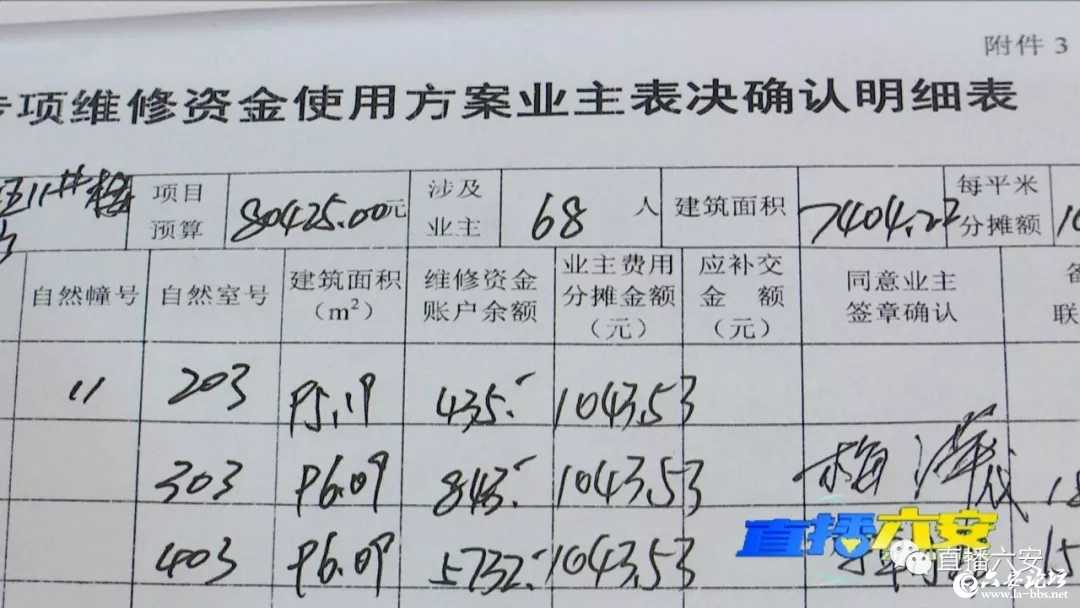 附件3
专项维修资金使用方案业主表决确认明细表
11#楼 项目预算 80425.00元 涉及业主 68 人 建筑面积 7404.22 每平米分摊额
自然幢号 自然室号 建筑面积(m²) 维修资金账户余额 业主费用分摊金额(元) 应补交金额(元) 同意业主签章确认
11 203 95.19 435.- 1043.53
303 96.09 843.- 1043.53 梅
403 96.09 5732.- 1043.53
直播六安
直播六安
六安论坛
www.la-bbs.net